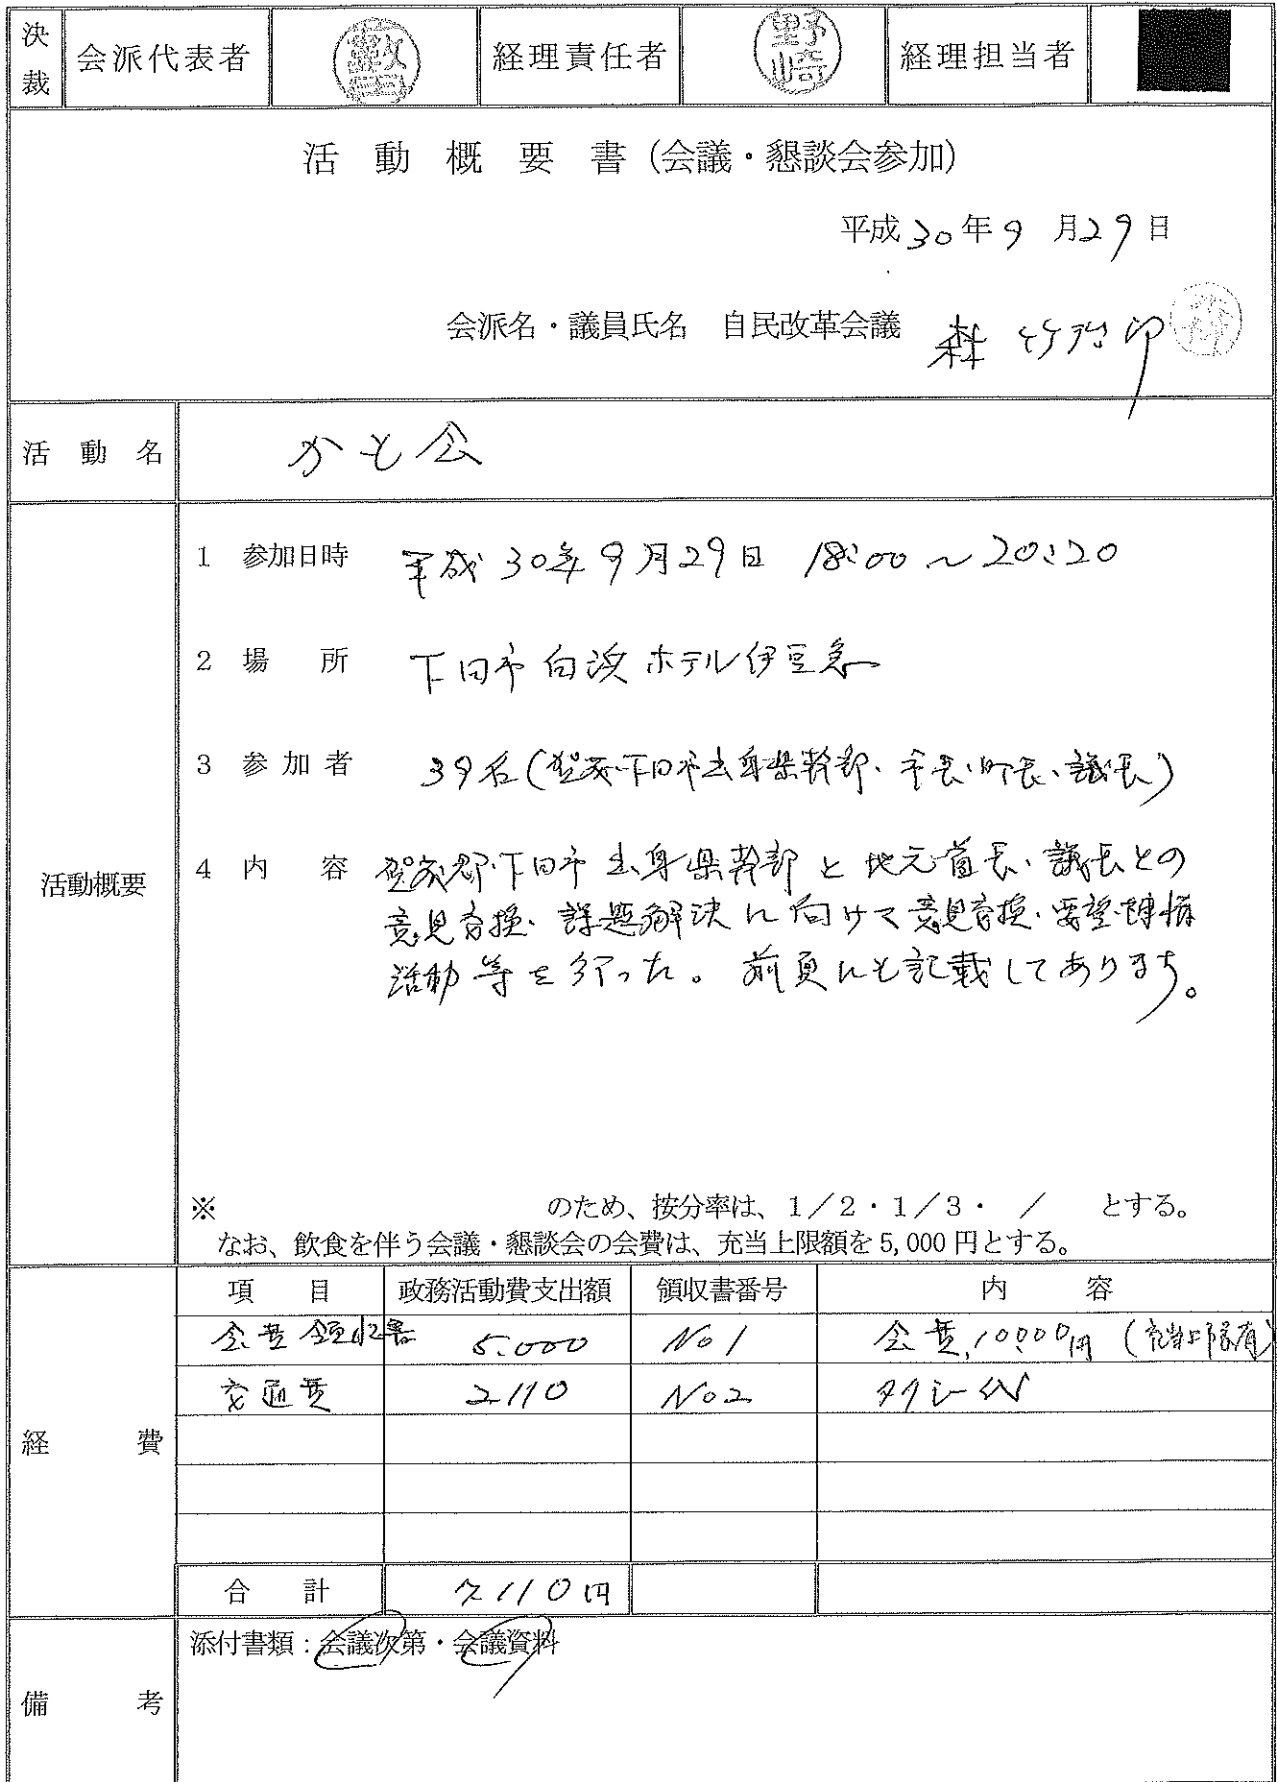 決裁 会派代表者 藪田 経理責任者 野崎 経理担当者
活動概要書(会議・懇談会参加)
平成30年9月29日
会派名・議員氏名 自民改革会議 森 竹治郎
活動名 かも会
活動概要
1 参加日時 平成30年9月29日 18:00～20:20
2 場所 下田市白浜ホテル伊豆急
3 参加者 39名(賀茂・下田市出身県幹部、市長、町長、議長)
4 内容 賀茂郡・下田市出身県幹部と地元首長、議長との
意見交換、課題解決に向けて意見交換、要望・陳情
活動等を行った。前頁にも記載してあります。
※ のため、按分率は、1/2・1/3・ / とする。
なお、飲食を伴う会議・懇談会の会費は、充当上限額を5,000円とする。
経費
項目 政務活動費支出額 領収書番号 内容
会費領収書 5.000 No1 会費10000円(充当上限有)
交通費 2110 No2 タクシー代
合計 7110円
備考 添付書類:会議次第・会議資料